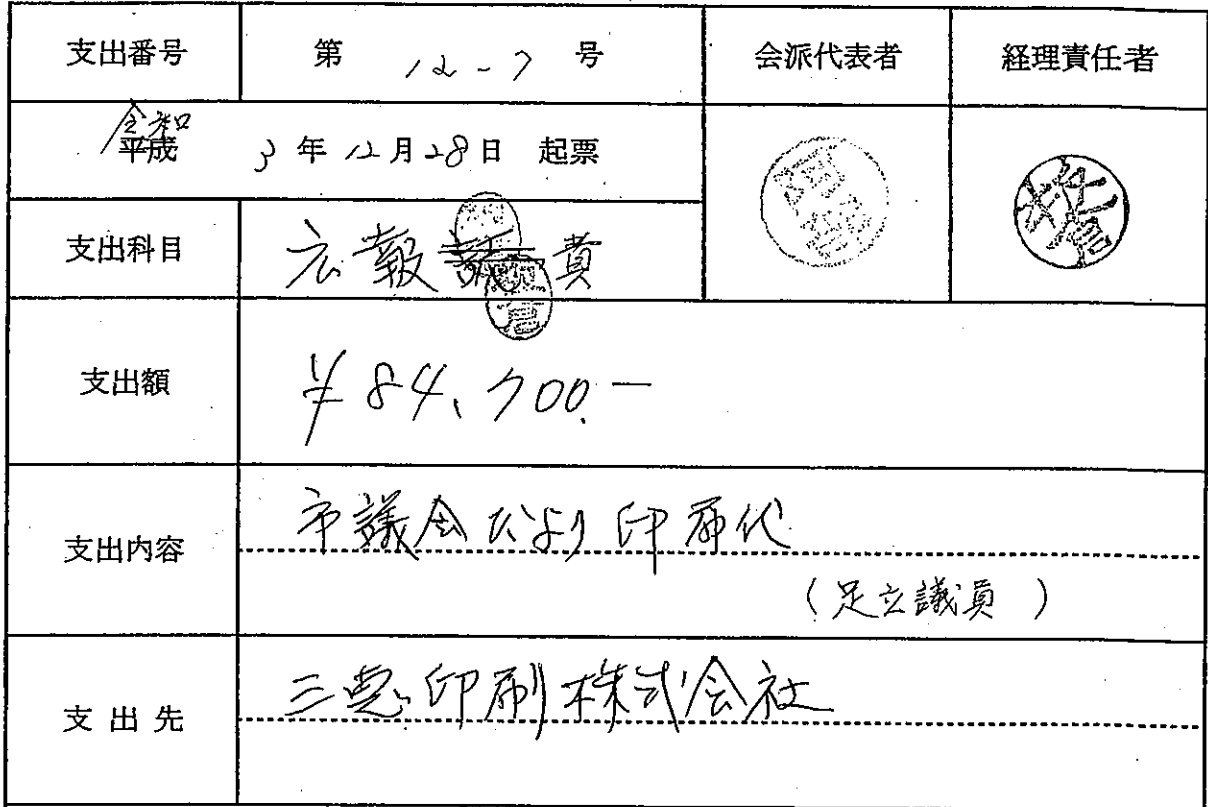 支出番号 第 12-7 号 会派代表者 経理責任者
令和
平成 3年12月28日 起票
支出科目 広報費
支出額 ¥84,700.-
支出内容 市議会だより印刷代
(足立議員)
支出先 三恵印刷株式会社